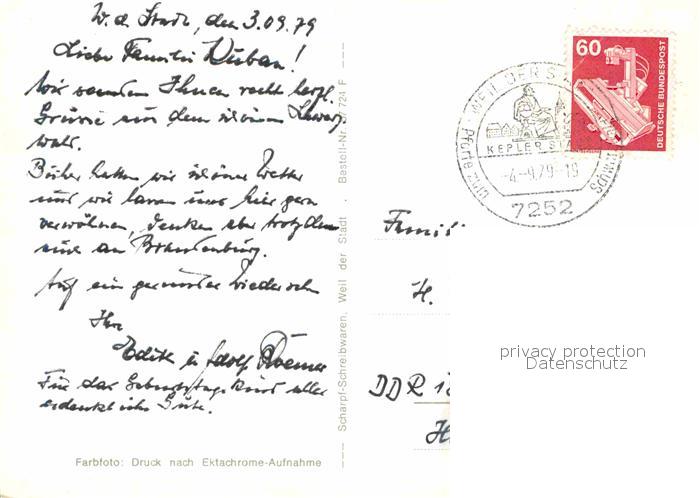 W. d. Stadt, den 3.09.79
Liebe Familie Kuban!
Wir senden Ihnen recht herzl.
Grüsse aus dem schönen Schwarz
wald.
Bisher hatten wir schönes Wetter
und wir lassen uns hier gern
verwöhnen, denken aber trotzdem
auch an Brandenburg.
Auf ein gesundes Wiedersehn
Ihre
Edith u Adolf
Für das Geburtstagskind alles
erdenklich Gute.
Farbfoto: Druck nach Ektachrome-Aufnahme
Scharpf-Schreibwaren, Weil der Stadt · Bestell-Nr. 724 F
60
DEUTSCHE BUNDESPOST
WEIL DER STADT
KEPLER STADT
-4.-9.79-19
Pforte zum
7252
Famili
H.
DDR 18
H
privacy protection
Datenschutz